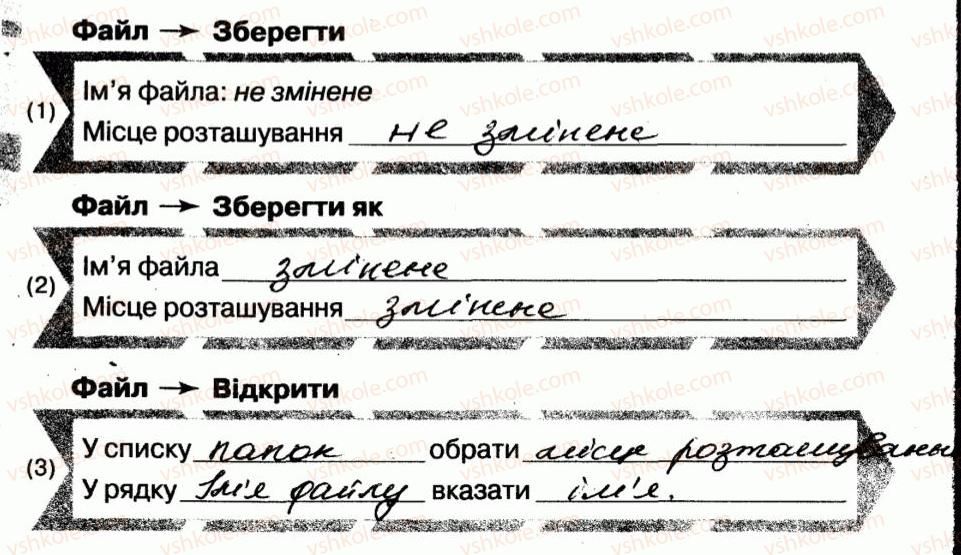 Файл → Зберегти
(1)
Ім'я файла: не змінене
Місце розташування не змінене
Файл → Зберегти як
(2)
Ім'я файла змінене
Місце розташування змінене
Файл → Відкрити
(3)
У списку папок обрати місце розташування
У рядку Ім'я файлу вказати ім'я.
vshkole.com